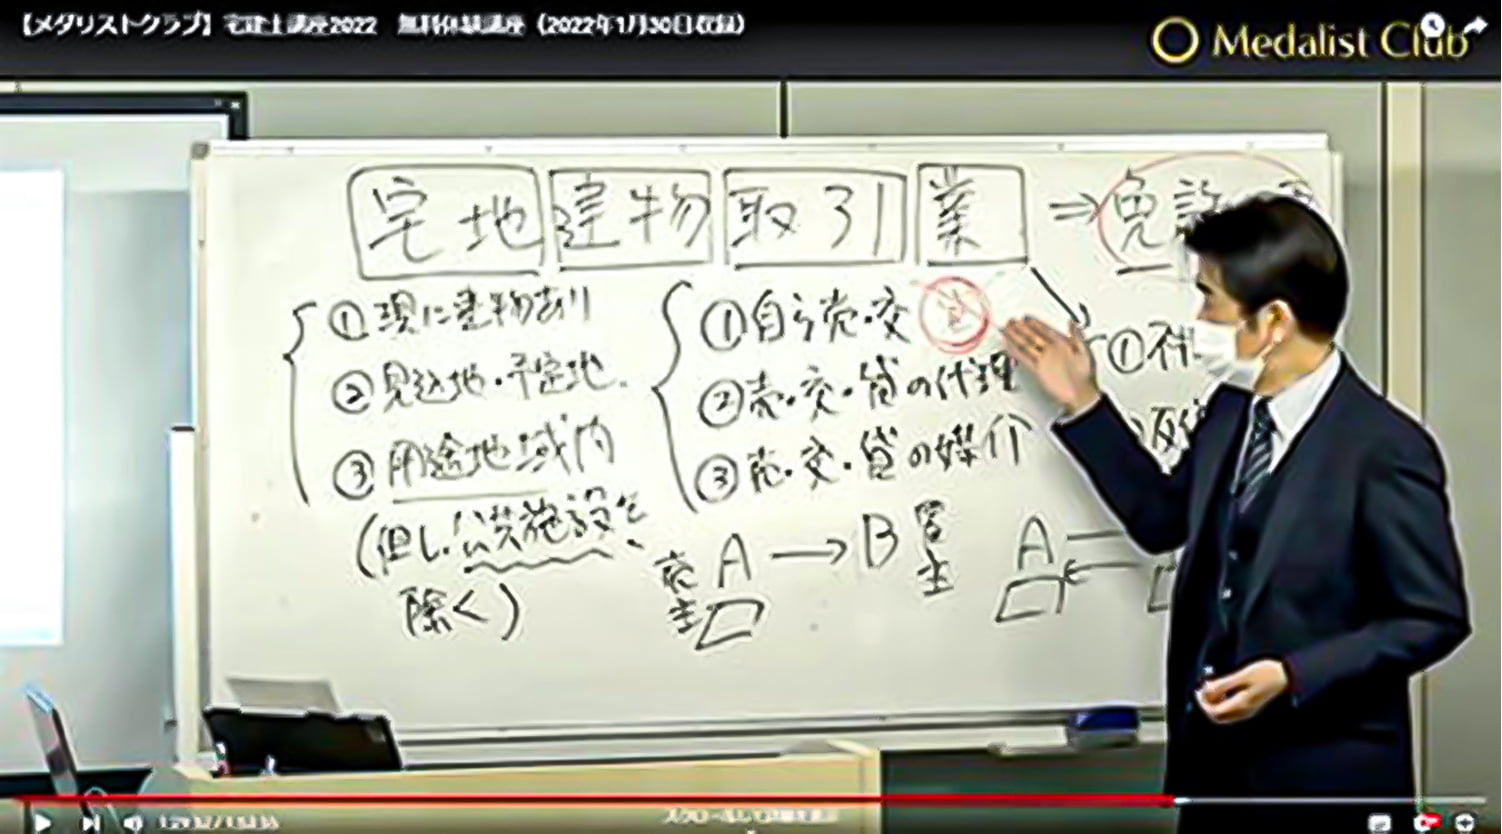 【メダリストクラブ】宅建士講座2022 無料体験講座（2022年1月30日収録）
Medalist Club
宅地 建物 取引 業 ⇒ 免許
①現に建物あり
②見込地・予定地
③用途地域内
(但し、公共施設を
除く)
①自ら売・交 貸
②売・交・貸の代理
③売・交・貸の媒介
売主 A → B 買主
A
①不
スクロールして詳細を表示